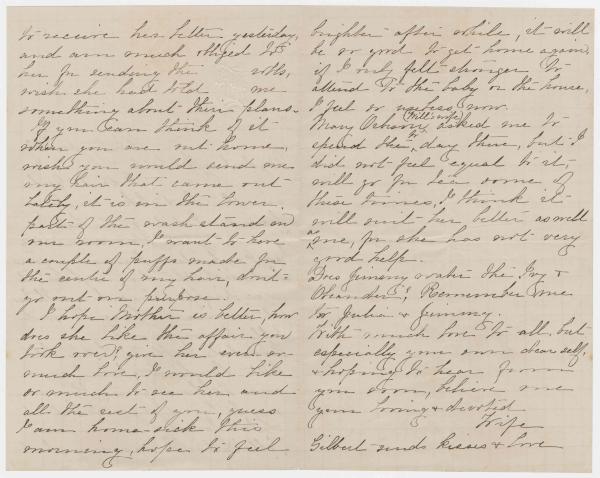 to receive her letter yesterday,
and am much obliged to
her for sending the rolls,
wish she had told me
something about their plans.
If you can think of it
when you are out home,
wish you would send me
my hair that came out
lately, it is in the lower
part of the wash stand in
our room, I want to have
a couple of puffs made for
the centre of my hair, don't
go out on purpose.
I hope Mother is better, how
does she like the affair you
took over? give her ever so
much love, I would like
so much to see her and
all the rest of you, guess
I am home-sick this
morning, hope to feel
brighter after while, it will
be so good to get home again,
if I only felt stronger to
attend to the baby or the house,
I feel so useless now.
Mary Osborn (Will's wife) asked me to
spend the day there, but I
did not feel equal to it,
will go for tea some of
these times, I think it
will suit her better as well
as me, for she has not very
good help.
Does Jimmy water the Ivy &
Oleander? Remember me
to Julia & Jimmy.
With much love to all, but
especially your own dear self,
& hoping to hear from
you soon, believe me
your loving & devoted
Wife
Gilbert sends kisses & love